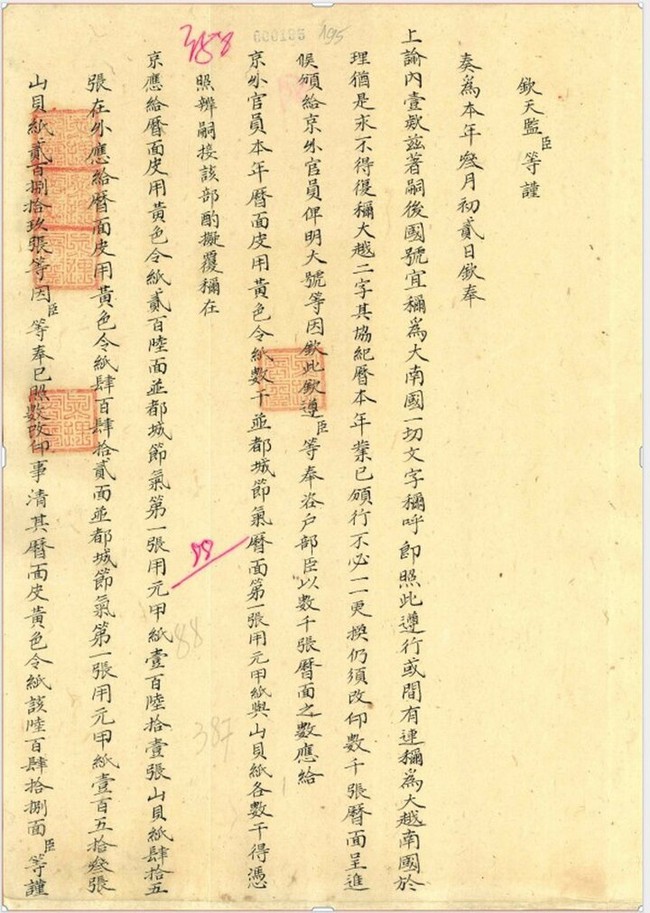 000195 195
388
欽天監臣等謹
奏為本年叁月初貳日欽奉
上諭內壹欵茲著嗣後國號宜稱為大南國一切文字稱呼即照此遵行或間有連稱為大越南國於
理猶是永不得復稱大越二字其協紀曆本年業已頒行不必一一更換仍須改印數千張曆面呈進
候頒給京外官員俾明大號等因欽此欽遵臣等奉咨戶部臣以數千張曆面之數應給
京外官員本年曆面皮用黃色令紙數千並都城節氣曆面第一張用元甲紙與山貝紙各數千得憑
照辦嗣接該部酌擬覆稱在
京應給曆面皮用黃色令紙貳百陸面並都城節氣第一張用元甲紙壹百陸拾壹張山貝紙肆拾五
張在外應給曆面皮用黃色令紙肆百肆拾貳面並都城節氣第一張用元甲紙壹百五拾叁張
山貝紙貳百捌拾玖張等因臣等奉已照數改印事清其曆面皮黃色令紙該陸百肆拾捌面臣等謹
88
88
387